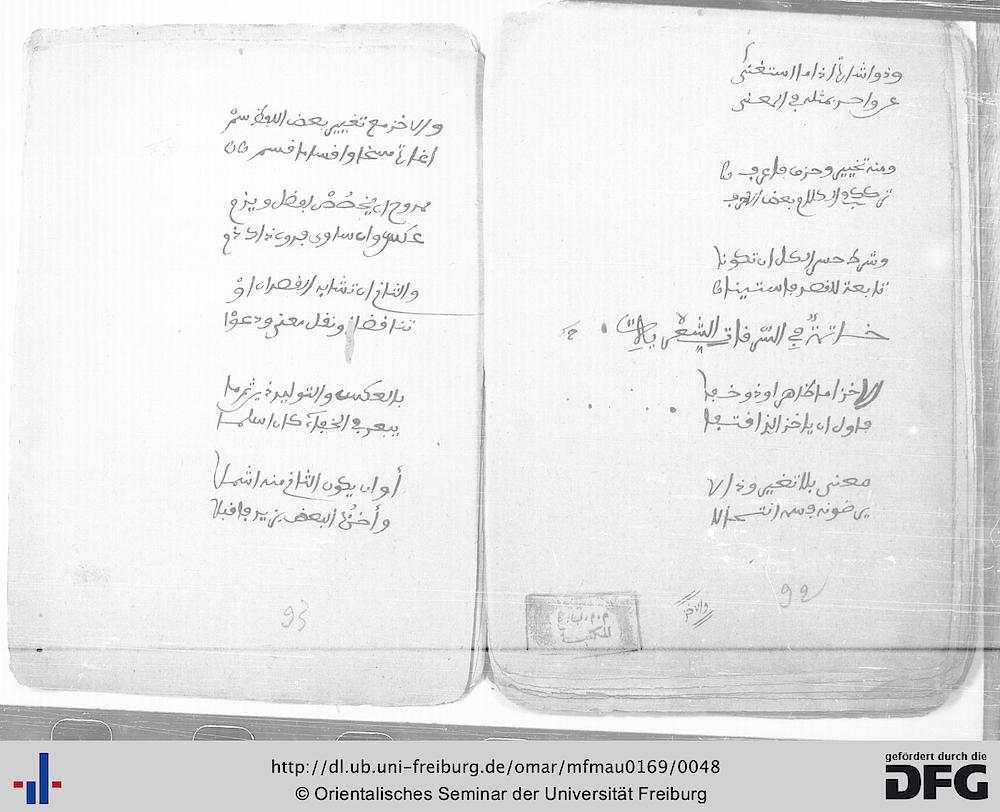 وذو اشارة اذا ما استغنى
عن واحد بمثله في المعنى
ومنه تخيير وحذف ما
وشرط حسن الكل ان تكونا
تابعة للقصد
خاتمة في السرقات الشعرية
الاخذ اما ظاهر او ذو خفا
فاول ان ياخذ الذ اقتفا
معنى بلا تغيير وذا لا
يرضونه وسمه انتحالا
والاخذ
92
والاخذ مع تغيير بعض اللفظ سم
اغارة مسخا واقسام قسم
ممدوح ان يخصص بفضل ويذم
عكس وان ساوى فدون ذاك ذم
والثان ان تشابه القصدان او
تناقضا ونقل معنى ودعوا
بالعكس والتوليد ثم ما
يبعد في الخفاء كان اسلما
أو ان يكون الثان منه اشملا
وأخذ البعض بزيد ما قبلا
93
http://dl.ub.uni-freiburg.de/omar/mfmau0169/0048
© Orientalisches Seminar der Universität Freiburg
gefördert durch die
DFG